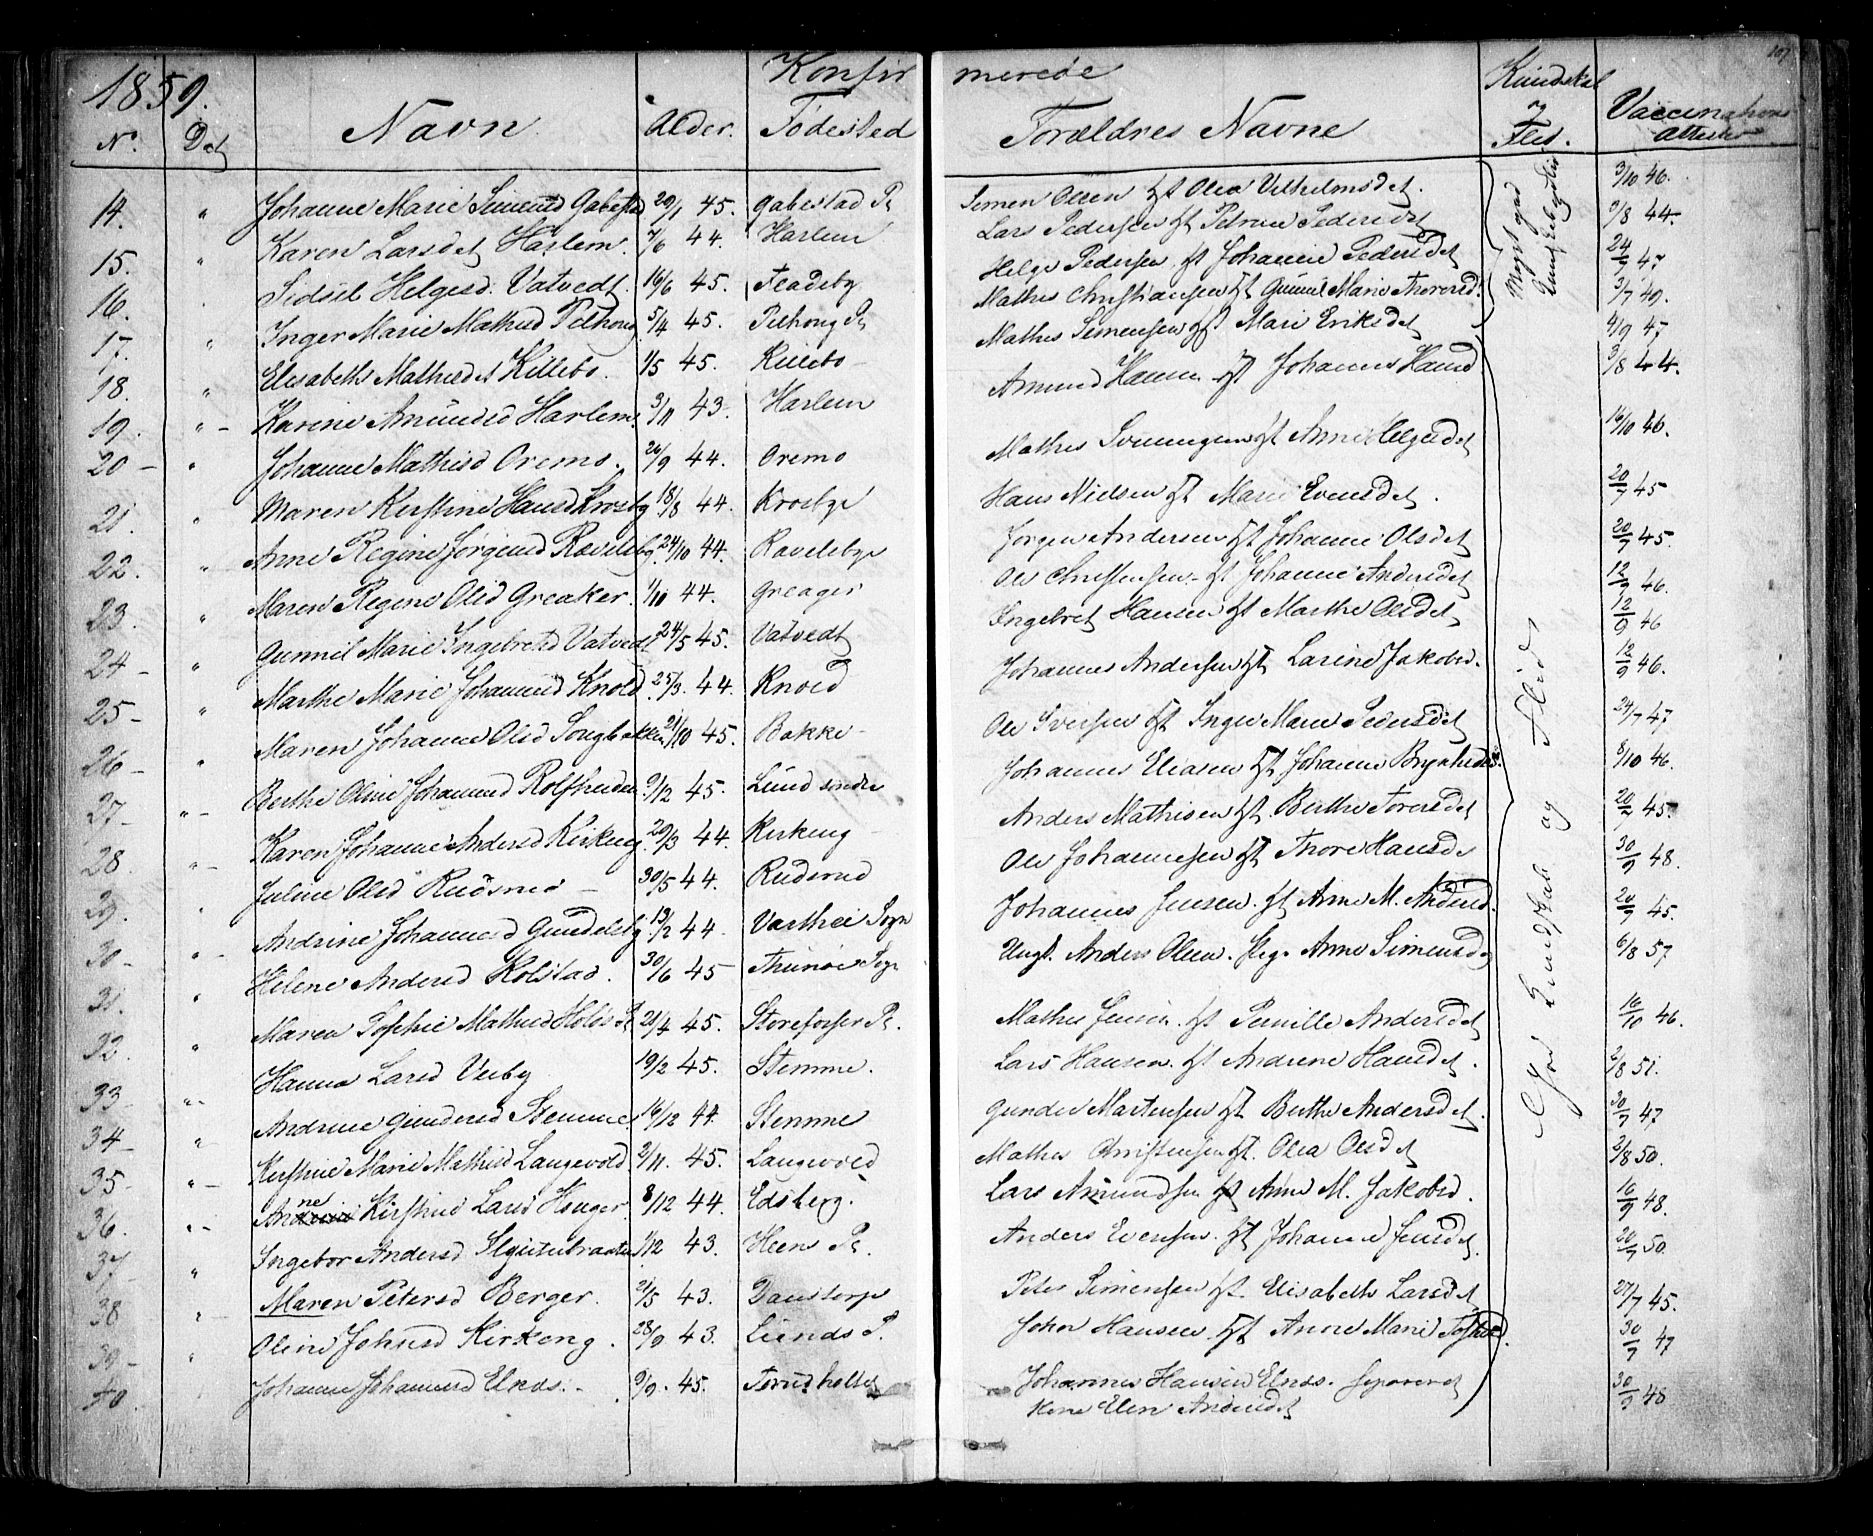 107
1859.
Konfirmerede
Kundskab
No. Dat Navn. Alder. Fødested Forældres Navne og Flid. Vaccinations Attester
14. " Johanne Marie Simensd 29/1 45. Gabestad Pl Simen Olsen Hst Olea Vilhelmsdet. 3/10 46.
15. " Karen Larsdet Harlem. 7/6 44. Harlem Lars Pedersen Hst Petrine Pedersdet 44.
16. Sidsel Helgesd. Vatvedt. 16/6 45. Fladeby Helge Pedersen Hst Johanne Pedersdet 24/9 47
17. " Inger Marie Mathisd 5/4 45. Mathis Christiansen Hst Gunnil Marie Thoresd. 3/7 49.
18. " Elisabeth Mathisdet Killebo. 1/5 45. Killebo Mathis Simensen Hst Mari Eriksdet 4/9 47
19. " Karine Amundsd Harlem. 3/11 43. Harlem Amund Hansen Hst Johanne Hansd 3/8 44.
20 " Johanne Mathisd Oremo. 26/9 44. Oremo Mathis Hst Anne Helgesdet 16/10 46.
21. " Maren Kirstine Hansd Krosby 18/8 44. Krosbye Hans Nielsen Hst Marie Evensdet. 20/7 45
22. " Anne Regine Jørgensd Raveleby. 24/10 44. Ravelebye Jørgen Andersen Hst Johanne Olsdet 20/7 45.
23. " Maren Regine Olsd Greaker. 1/10 44. Greager Ole Christensen Hst Johanne Andersdet 12/9 46.
24 " Gunnil Marie Ingebretsd Vatvedt 24/5 45. Vatvedt Ingebret Hansen Hst Marthe Olsdet 12/9 46
25 " Marthe Marie Johannesd Knold. 25/3. 44. Knold Johannes Andersen Hst Larine Jakobsd. 12/9 46.
26 " Maren Johanne Olsd 21/10 45. Bakke Ole Iversen Hst Inger Marie Pedersdet 24/7 47
27 " Berthe Oline Johannesd 9/12 45. Lund søndre Johannes Eliasen Hst Johanne 8/10 46.
28. " Karen Johanne Andersd Kirkeng. 29/3 44. Kirkeng Anders Mathisen Hst. Berthe Toresdet 20/7 45.
29. Juline Olsd Rudsrud 30/5 44. Rudsrud Ole Johannesen Hst Thore Hansd 30/9 48.
30 " Andrine Johannesd Gundelsby 13/2 44. Varthei Sogn Johannes Jensen. Hst Anne M. Andersd. 20/9 45.
31. " Helene Andersd Kolstad. 30/6 45 Thunøe Sogn Ungk. Anders Olsen. Pige Anne Simensdet 6/8 57
32. " Maren Sophie Mathisd 21/4 45. Storefosser Pl. Mathis Jensen. Hst Pernille Andersdet 16/10 46.
33 Hanna Larsd Visby 19/2 45. Stemme. Lars Hansen Hst Andrine Hansdet. 2/8 51.
34 " Andrine Gundersd Stemme 16/12 44. Stemme Gunder Martensen Hst Berthe Andersdet. 30/9 47
35 " Kirstine Marie Mathisd Langevold 2/11. 45. Langevold Mathis Christensen Hst. Olea Olsdet 2/8 50.
36. " Anne Kirstine Larsd 8/12 44. Edsberg. Lars Amundsen Hst Anne M. Jakobsd. 16/9 48.
37 " Ingebor Andersd 1/12 43. Heens Pl. Anders Evensen Hst Johanne Jensdet. 20/9 50.
38 " Maren Petersd Berger. 2/5 43. Peter Simensen Hst. Elisabeth Larsdet 27/7 45.
39 " Oline Johnsd Kirkeng. 28/9 43. Lunds P. John Hansen Hst Anne Marie 30/9 47
40. Johanne Johannesd Elnæs. 9/9. 45. Johannes Hansen Elnæs. separeret 30/9 48
Kone Elen Andersdet
Meget god
God Kundskab og Flid